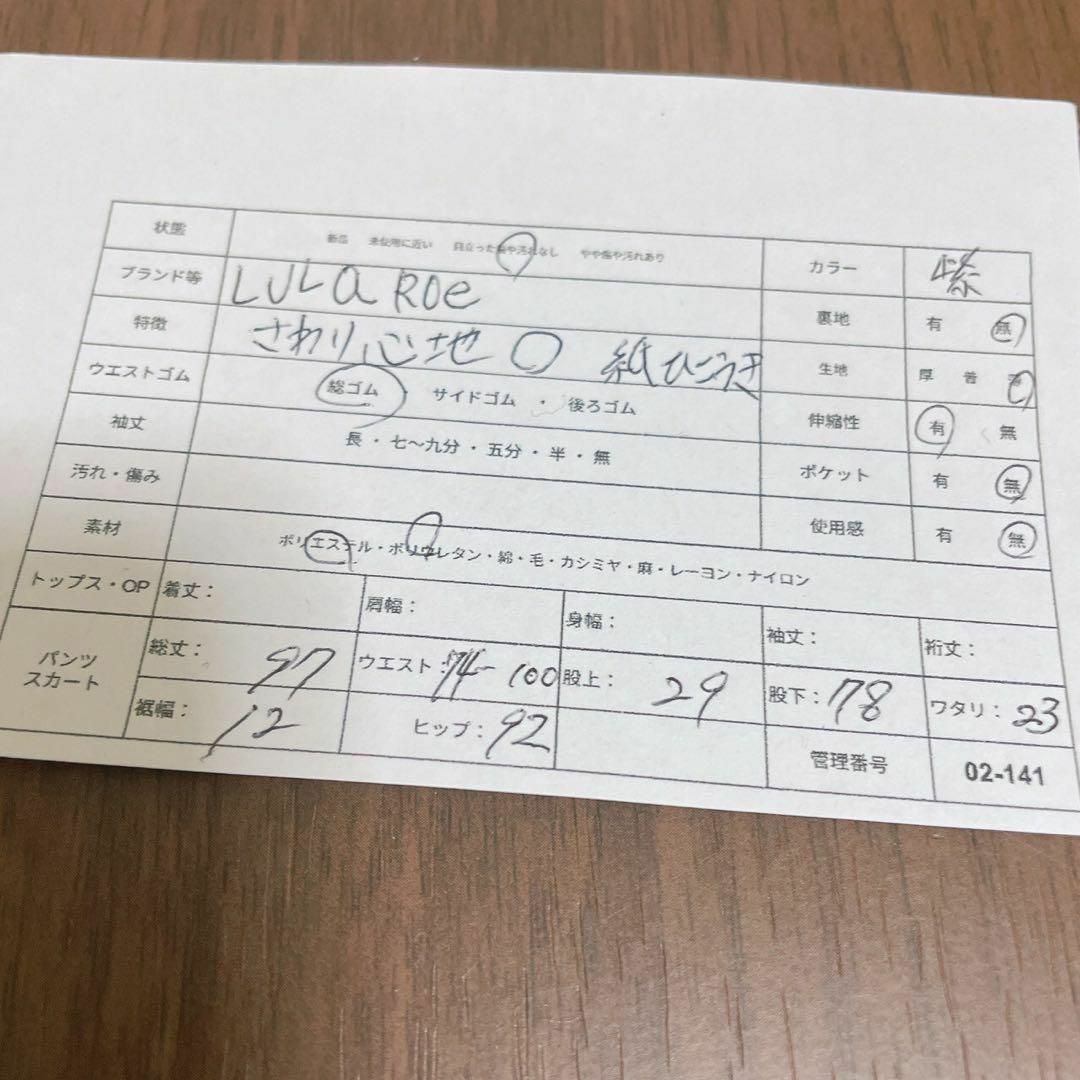 状態 新品 未使用に近い 目立った傷や汚れなし やや傷や汚れあり カラー 紫
ブランド等 LULaROe 裏地 有 無
特徴 さわり心地〇 紙ひこうき 生地 厚 普
ウエストゴム 総ゴム ・ サイドゴム ・ 後ろゴム 伸縮性 有 無
袖丈 長・七〜九分・五分・半・無 ポケット 有 無
汚れ・傷み 使用感 有 無
素材 ポリエステル・ポリウレタン・綿・毛・カシミヤ・麻・レーヨン・ナイロン
トップス・OP 着丈: 肩幅: 身幅: 袖丈: 裄丈:
パンツ スカート 総丈: 97 ウエスト: 74-100 股上: 29 股下: 78 ワタリ: 23
裾幅: 12 ヒップ: 92 管理番号 02-141